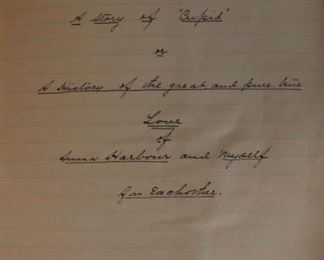 A Story of "Cupid"
or
A History of the great and pure true
Love
of
Anna Harbour and Myself
for Eachother.